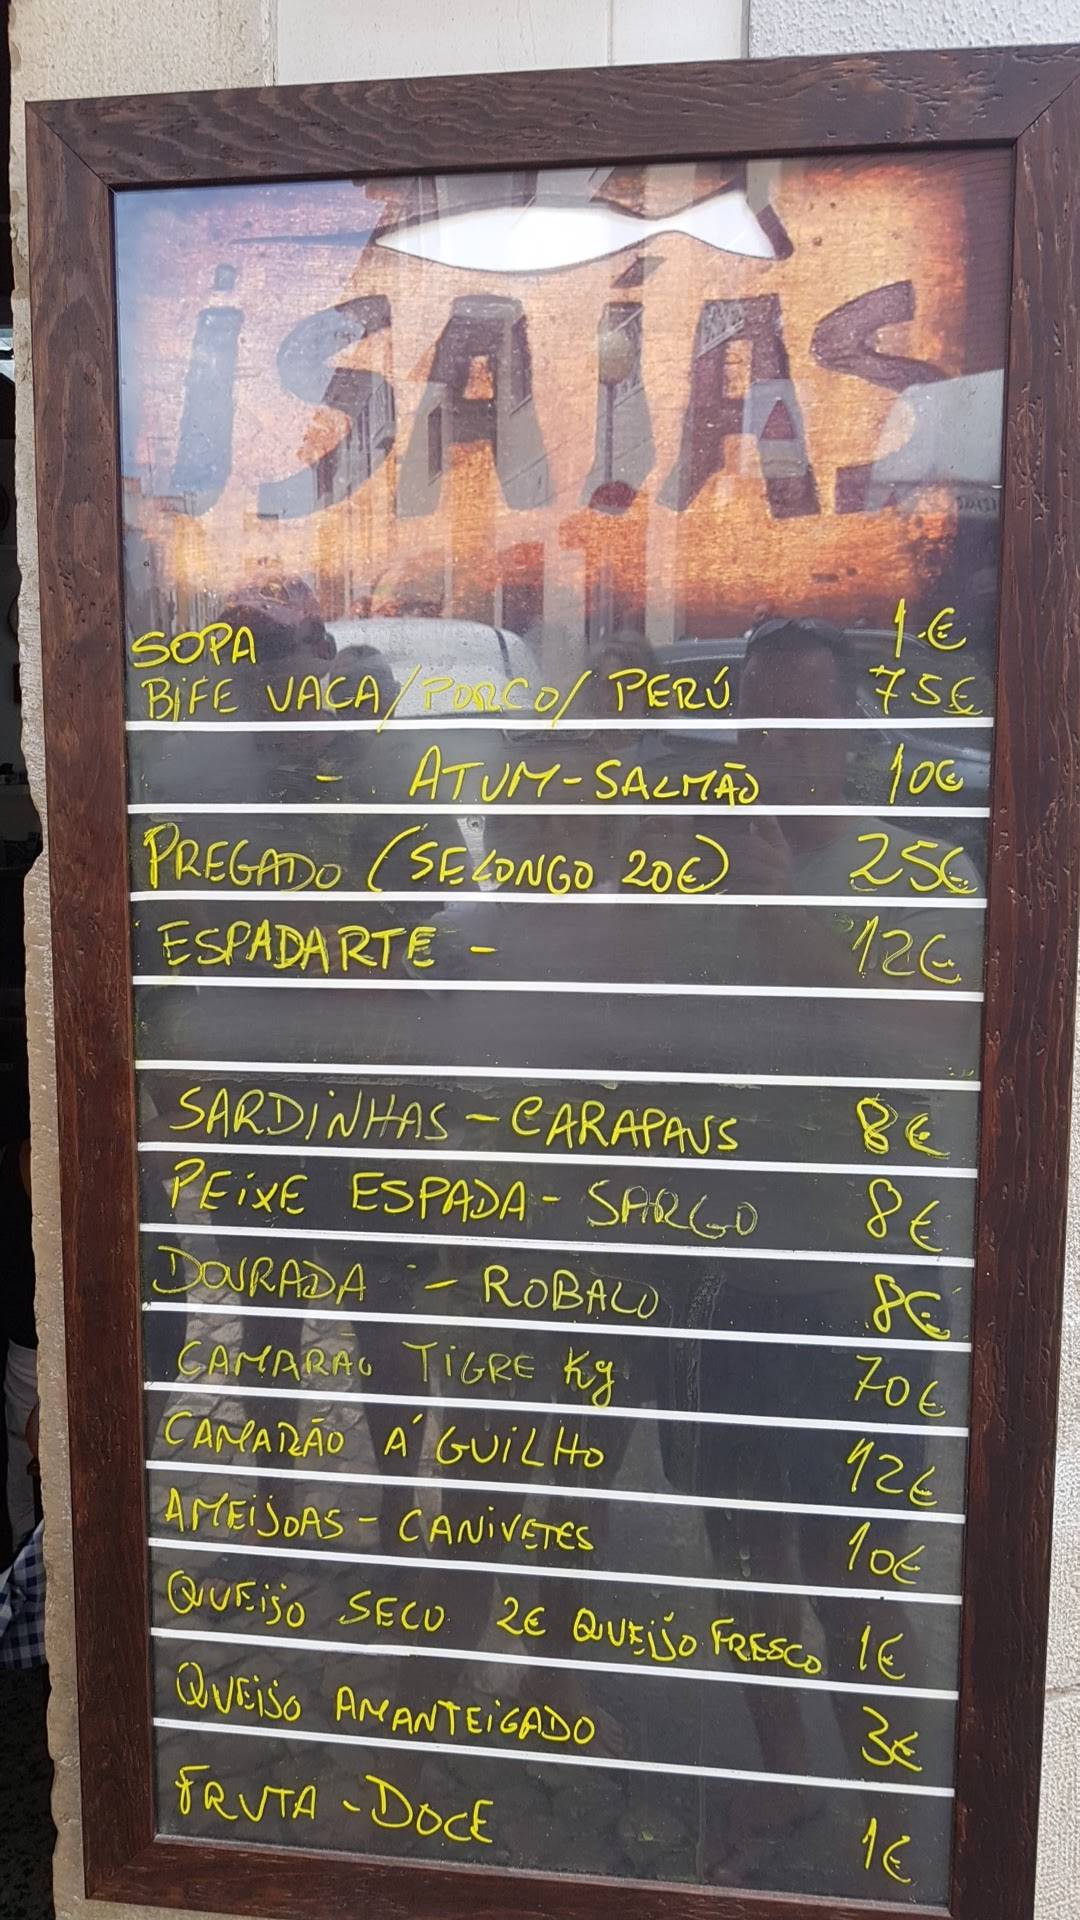 iSAÍAS
SOPA 1€
BIFE VACA/PORCO/PERÚ 75€
- ATUM-SALMÃO 10€
PREGADO (SELONGO 20€) 25€
ESPADARTE - 12€
SARDINHAS - CARAPAUS 8€
PEIXE ESPADA - SARGO 8€
DOURADA - ROBALO 8€
CAMARÃO TIGRE Kg 70€
CAMARÃO Á GUILHO 12€
AMEIJOAS - CANIVETES 10€
QUEIJO SECO 2€ QUEIJO FRESCO 1€
QUEIJO AMANTEIGADO 3€
FRUTA - DOCE 1€